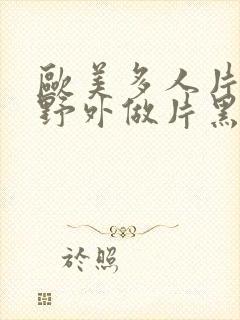 歐美多人片
野外做片黑
於照